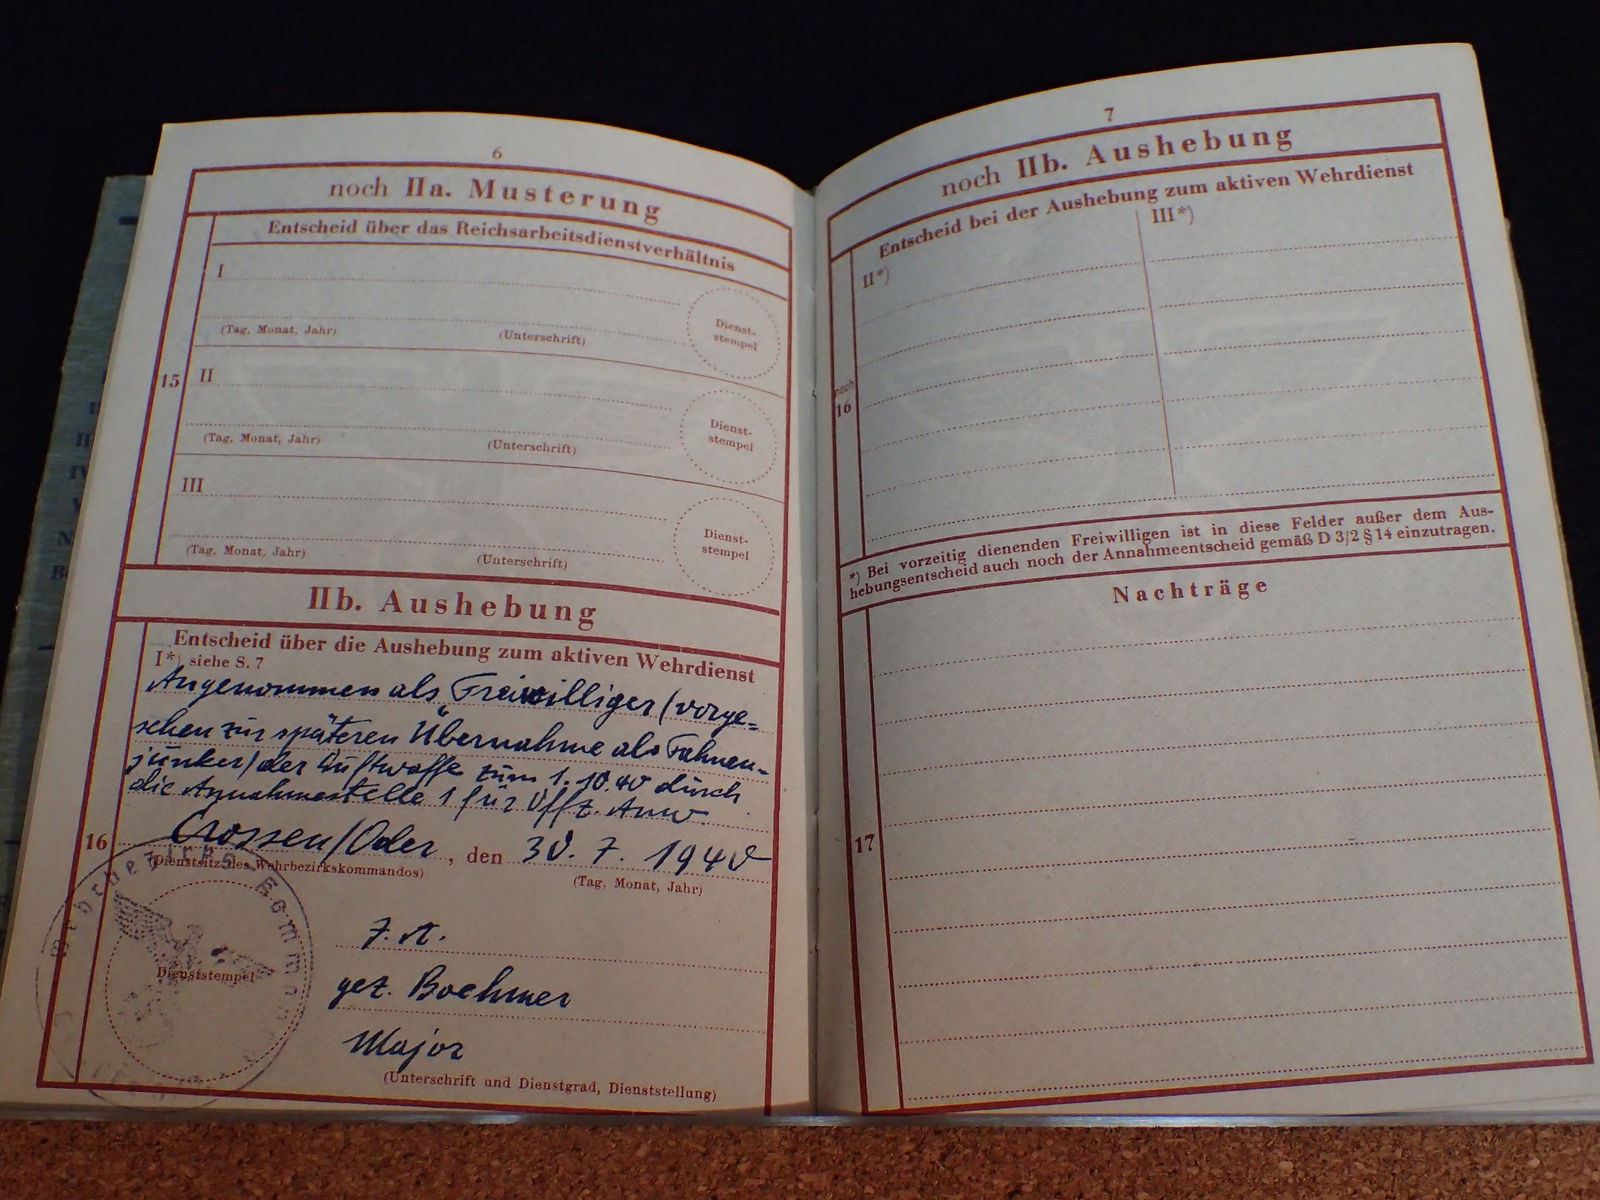 6
noch IIa. Musterung
Entscheid über das Reichsarbeitsdienstverhältnis
15
I
(Tag, Monat, Jahr) (Unterschrift)
Dienst-
stempel
II
(Tag, Monat, Jahr) (Unterschrift)
Dienst-
stempel
III
(Tag, Monat, Jahr) (Unterschrift)
Dienst-
stempel
IIb. Aushebung
Entscheid über die Aushebung zum aktiven Wehrdienst
I*) siehe S. 7
Angenommen als Freiwilliger (vorge-
sehen zur späteren Übernahme als Fahnen-
junker) der Luftwaffe zum 1.10.40 durch
die Annahmestelle 1 für Uffz. Anw.
16
Crossen/Oder, den 30. 7. 1940
(Dienstsitz des Wehrbezirkskommandos) (Tag, Monat, Jahr)
Wehrbezirks-Kommando
Dienststempel
I. A.
gez. Boehmer
Major
(Unterschrift und Dienstgrad, Dienststellung)
7
noch IIb. Aushebung
Entscheid bei der Aushebung zum aktiven Wehrdienst
II*) III*)
noch
16
*) Bei vorzeitig dienenden Freiwilligen ist in diese Felder außer dem Aus-
hebungsentscheid auch noch der Annahmeentscheid gemäß D 3/2 § 14 einzutragen.
Nachträge
17